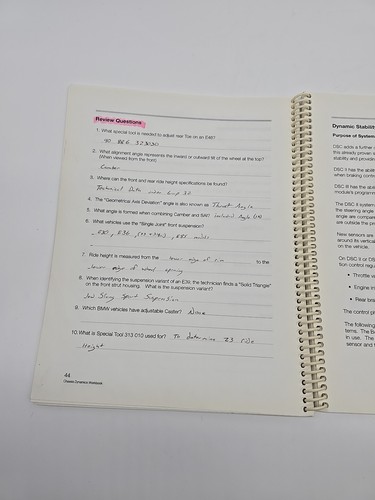 Review Questions
1. What special tool is needed to adjust rear Toe on an E46?
90 88 6 323030
2. What alignment angle represents the inward or outward tilt of the wheel at the top?
(When viewed from the front)
Camber
3. Where can the front and rear ride height specifications be found?
Technical Data under Group 32
4. The "Geometrical Axis Deviation" angle is also known as Thrust Angle
5. What angle is formed when combining Camber and SAI? Included Angle
6. What vehicles use the "Single Joint" front suspension?
E30, E36,
7. Ride height is measured from the lower edge of rim to the
lower edge of wheel opening
8. When identifying the suspension variant of an E39, the technician finds a "Solid Triangle"
on the front strut housing. What is the suspension variant?
Low Slung Sport Suspension
9. Which BMW vehicles have adjustable Caster? None
10. What is Special Tool 313 010 used for? To determine Z3 ride
Height
44
Chassis Dynamics Workbook
Dynamic Stabilit
Purpose of System
DSC adds a further
this already proven
stability and provide
DSC II has the abili
when braking contr
DSC III has the abi
module's programm
The DSC III system
the steering angle
angle are compare
are outside the pr
New sensors are
around its vertical
on the vehicle.
On DSC II or DS
tion control regu
• Throttle v
• Engine in
• Rear bra
The control ph
The following
tems. The B
in use. The
sensor and